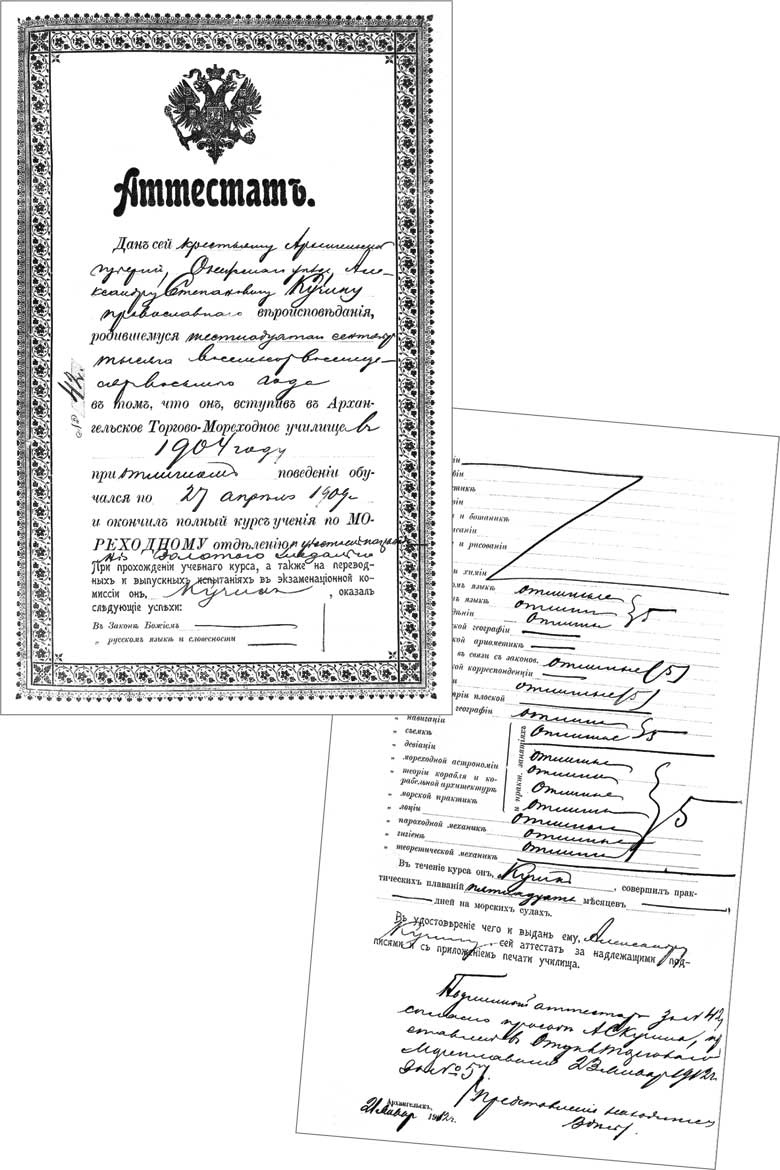 Аттестатъ.
Данъ сей крестьянину Архангельской
губерніи, Онежскаго уѣзда, Але-
ксандру Степановичу Кучину
православнаго вѣроисповѣданія,
родившемуся шестнадцатаго сентября
тысяча восемьсотъ восемьде-
сятъ восьмого года
№ 42
въ томъ, что онъ, вступивъ въ Архан-
гельское Торгово-Мореходное училище въ
1904 году
при отличномъ поведеніи обу-
чался по 27 апрѣля 1909 г.
и окончилъ полный курсъ ученія по МО-
РЕХОДНОМУ отдѣленію
золотого медалью
При прохожденіи учебнаго курса, а также на перевод-
ныхъ и выпускныхъ испытаніяхъ въ экзаменаціонной ко-
миссіи онъ, Кучинъ, оказалъ
слѣдующіе успѣхи:
Въ Законѣ Божіемъ
„ русскомъ языкѣ и словесности
и ботаникѣ
и рисованіи
химіи
языкѣ отличные
языкѣ отличные } 5
отличные
географіи
ариѳметикѣ
въ связи съ законов. отличные (5)
корреспонденціи
отличные (5)
плоской
географіи отличные } 5
„ навигаціи отличные
„ съемкѣ
„ девіаціи отличные
„ мореходной астрономіи отличные
„ теоріи корабля и ко-
рабельной архитектурѣ отличные
и практ. занятіяхъ
„ морской практикѣ отличные } 5
„ лоціи отличные
„ пароходной механикѣ отличные
„ гигіенѣ отличные
„ теоретической механикѣ
Въ теченіе курса онъ, Кучинъ, совершилъ прак-
тическихъ плаваній пятнадцать мѣсяцевъ
дней на морскихъ судахъ.
Въ удостовѣреніе чего и выданъ ему, Александру
Кучину, сей аттестатъ за надлежащими под-
писями и съ приложеніемъ печати училища.
Подлинный аттестатъ за № 42,
согласно просьбѣ А.С. Кучина,
въ Отдѣлъ Торговаго
Мореплаванія 23 января 1912 г.
за № 5
Архангельскъ,
21 января 1912 г.